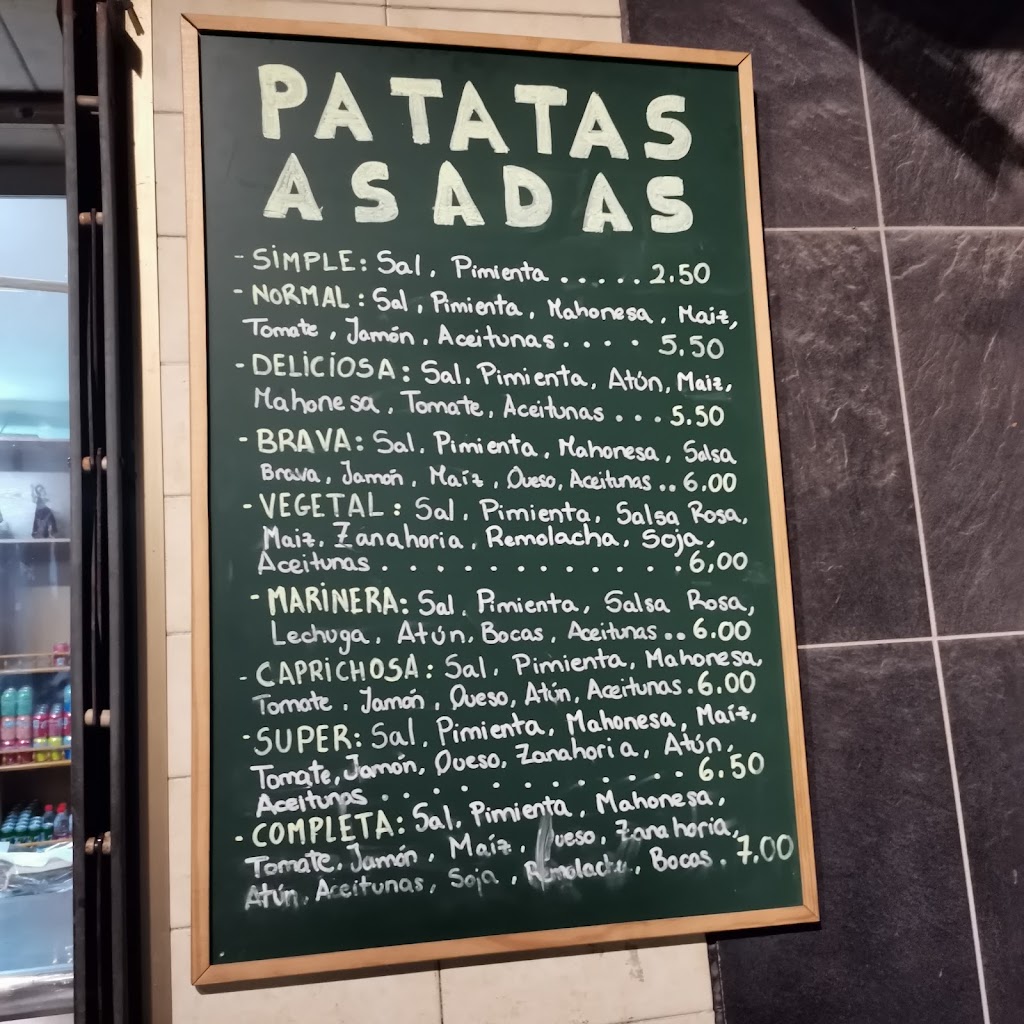 PATATAS
ASADAS
- SiMPLE: Sal, Pimienta ..... 2.50
- NORMAL: Sal, Pimienta, Mahonesa, Maiz,
Tomate, Jamón, Aceitunas .... 5,50
- DELiCiOSA: Sal, Pimienta, Atún, Maiz,
Mahonesa, Tomate, Aceitunas ... 5.50
- BRAVA: Sal, Pimienta, Mahonesa, Salsa
Brava, Jamón, Maíz, Queso, Aceitunas .. 6.00
- VEGETAL: Sal, Pimienta, Salsa Rosa,
Maiz, Zanahoria, Remolacha, Soja,
Aceitunas ............. 6,00
- MARiNERA: Sal, Pimienta, Salsa Rosa,
Lechuga, Atún, Bocas, Aceitunas .. 6.00
- CAPRICHOSA: Sal, Pimienta, Mahonesa,
Tomate, Jamón, Queso, Atún, Aceitunas . 6.00
- SUPER: Sal, Pimienta, Mahonesa, Maíz,
Tomate, Jamón, Queso, Zanahoria, Atún,
Aceitunas ............ 6.50
- COMPLETA: Sal, Pimienta, Mahonesa,
Tomate, Jamón, Maíz, Queso, Zanahoria,
Atún, Aceitunas, Soja, Remolacha, Bocas . 7.00